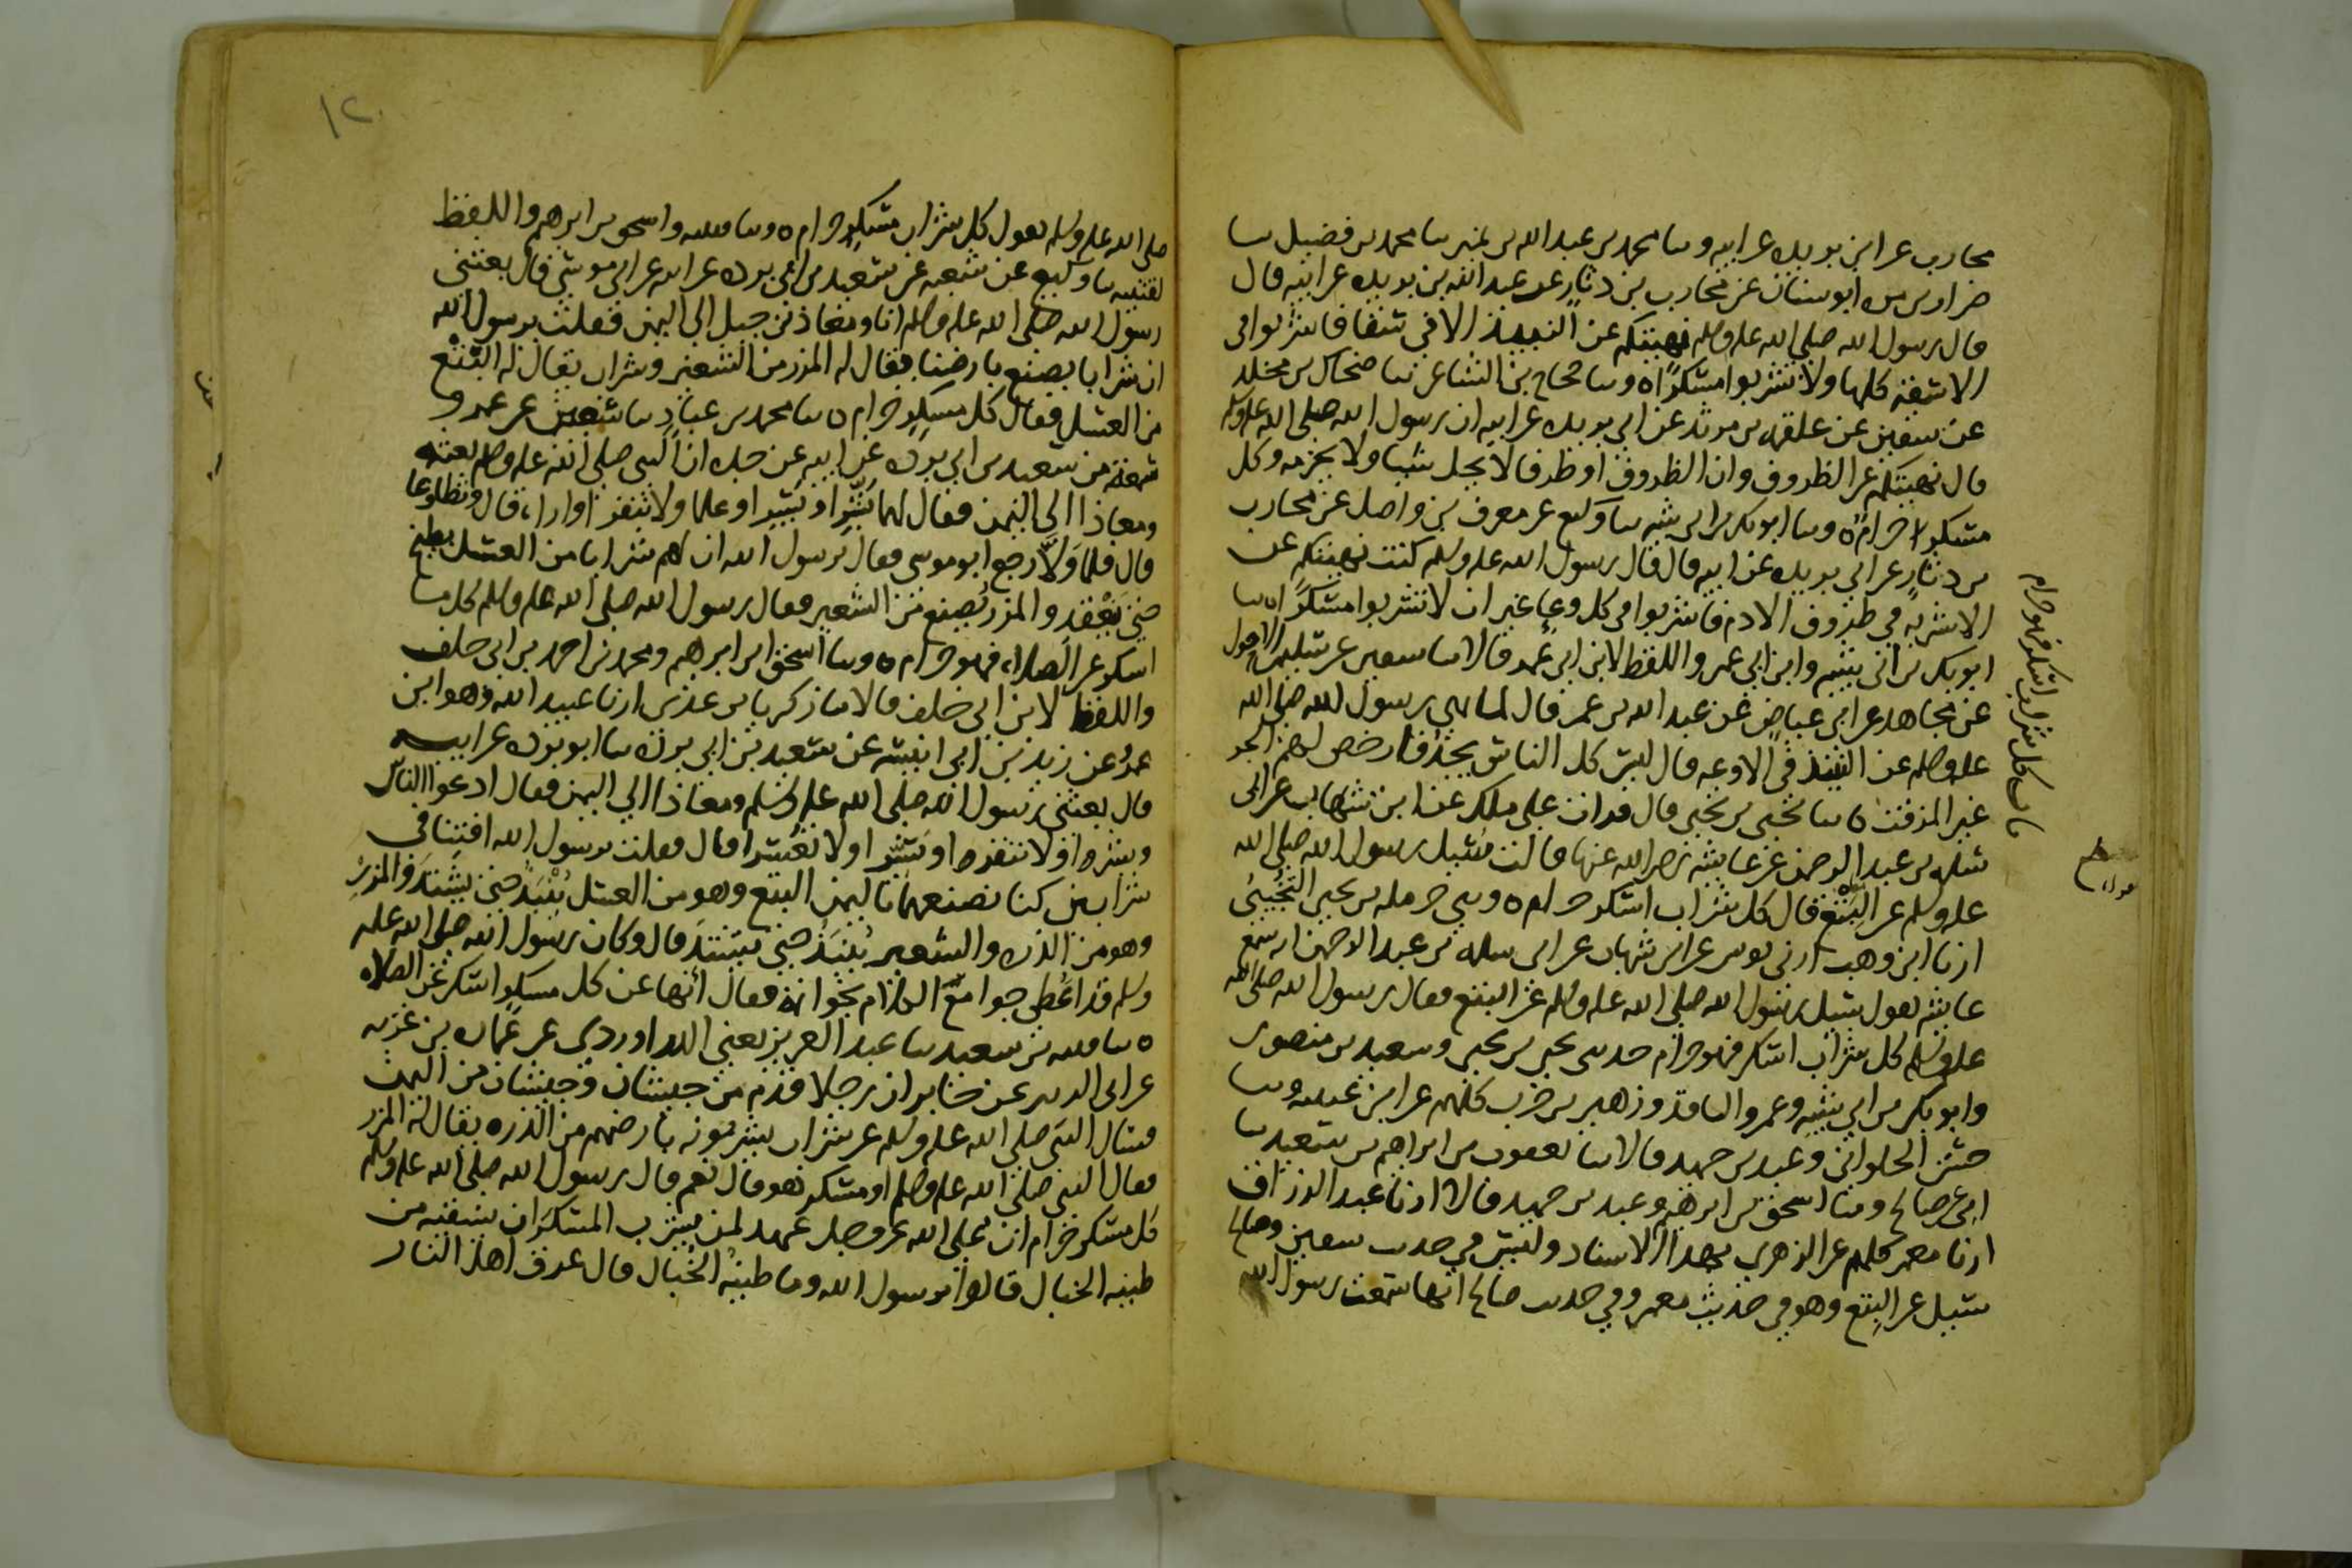 محارب عن ابن بريده عن ابيه وسا محمد بن عبد الله بن نمير سا محمد بن فضيل سا
ضرار بن مره ابو سنان عن محارب بن دثار عن عبد الله بن بريده عن ابيه قال
قال رسول الله صلى الله عليه وسلم نهيتكم عن النبيذ الا في سقا فاشربوا في
الاسقيه كلها ولا تشربوا مسكرا ه وسا حجاج بن الشاعر سا ضحاك بن مخلد
عن سفين عن علقمه بن مرثد عن ابن بريده عن ابيه ان رسول الله صلى الله عليه وسلم
قال نهيتكم عن الظروف وان الظروف او ظرفا لا يحل شيا ولا يحرمه وكل
مسكر حرام ه وسا ابو بكر بن ابي شيبه سا وكيع عن معرف بن واصل عن محارب
بن دثار عن ابن بريده عن ابيه قال قال رسول الله عليه وسلم كنت نهيتكم عن
الاشربه في ظروف الادم فاشربوا في كل وعا غير ان لا تشربوا مسكرا ه سا
ابو بكر بن ابي شيبه وابن ابي عمر واللفظ لابن ابي عمر قالا سا سفين عن سليمن الاحول
عن مجاهد عن ابي عياض عن عبد الله بن عمر قال لما نهى رسول الله صلى الله
عليه وسلم عن النبيذ في الاوعيه قال ليس كل الناس يجد فارخص لهم الجر
غير المزفت ه سا يحيى بن يحيى قال قرات على ملك عن ابن شهاب عن ابي
سلمه بن عبد الرحمن عن عايشه رضي الله عنها قالت سئيل رسول الله صلى الله
عليه وسلم عن البتع فقال كل شراب اسكر حرام ه وسي حرمله بن يحيى التجيبي
ارنا ابن وهب ارني يونس عن ابن شهاب عن ابي سلمه بن عبد الرحمن انه سمع
عايشه تقول سئيل رسول الله صلى الله عليه وسلم عن البتع فقال رسول الله صلى الله
عليه وسلم كل شراب اسكر فهو حرام حدسي يحيى بن يحيى وسعيد بن منصور
وابو بكر بن ابي شيبه وعمرو الناقد وزهير بن حرب كلهم عن ابن عيينه وسا
حسن الحلواني وعبد بن حميد قالا سا يعقوب بن ابراهيم بن سعيد سا
ابي عن صالح وسا اسحق بن ابرهيم وعبد بن حميد قالا ارنا عبد الرزاق
ارنا معمر كلهم عن الزهري بهذا الاسناد وليس في حديث سفين وصالح
سئيل عن البتع وهو في حديث معمر وفي حديث صالح انها سمعت رسول الله
باب كل شراب اسكر فهو حرام
١٢٠
صلى الله عليه وسلم يقول كل شراب مسكر حرام ه وسا قتيبه واسحق بن ابرهيم واللفظ
لقتيبه سا وكيع عن شعبه عن سعيد بن ابي برده عن ابيه عن ابي موسى قال بعثني
رسول الله صلى الله عليه وسلم انا ومعاذ بن جبل الى اليمن فقلت يرسول الله
ان شرابا يصنع بارضنا يقال له المزر من الشعير وشراب يقال له البتع
من العسل فقال كل مسكر حرام ه سا محمد بن عباد سا سفين عن عمرو
سمعه من سعيد بن ابي برده عن ابيه عن جده ان النبي صلى الله عليه وسلم بعثه
ومعاذا الى اليمن فقال لهما بشرا ويسرا وعلما ولا تنفرا واراه قال وتطاوعا
قال فلما ولا رجع ابو موسى فقال يرسول الله ان لهم شرابا من العسل يطبخ
حتى يعقد والمزر يصنع من الشعير فقال رسول الله صلى الله عليه وسلم كل ما
اسكر عن الصلاه فهو حرام ه وسا اسحق ابن ابرهيم ومحمد بن احمد بن ابي خلف
واللفظ لابن ابي خلف قالا سا زكريا بن عدي ارنا عبيد الله وهو ابن
عمرو عن زيد بن ابي انيسه عن سعيد بن ابي برده سا ابو برده عن ابيه
قال بعثني رسول الله صلى الله عليه وسلم ومعاذا الى اليمن فقال ادعوا الناس
وبشرا ولا تنفرا ويسرا ولا تعسرا قال فقلت يرسول الله افتنا في
شرابين كنا نصنعهما باليمن البتع وهو من العسل ينبذ حتى يشتد والمزر
وهو من الذره والشعير ينبذ حتى يشتد قال وكان رسول الله صلى الله عليه
وسلم قد اعطي جوامع الكلام بخواتمه فقال انها عن كل مسكر اسكر عن الصلاه
ه سا قتيبه بن سعيد سا عبد العزيز يعني الدراوردي عن عماره بن غزيه
عن ابي الزبير عن جابر ان رجلا قدم من جيشان وجيشان من اليمن
فسال النبي صلى الله عليه وسلم عن شراب يشربونه بارضهم من الذره يقال له المزر
فقال النبي صلى الله عليه وسلم او مسكر هو قال نعم قال رسول الله صلى الله عليه وسلم
كل مسكر حرام ان على الله عز وجل عهد لمن يشرب المسكر ان يسقيه من
طينه الخبال قالوا يرسول الله وما طينه الخبال قال عرق اهل النار